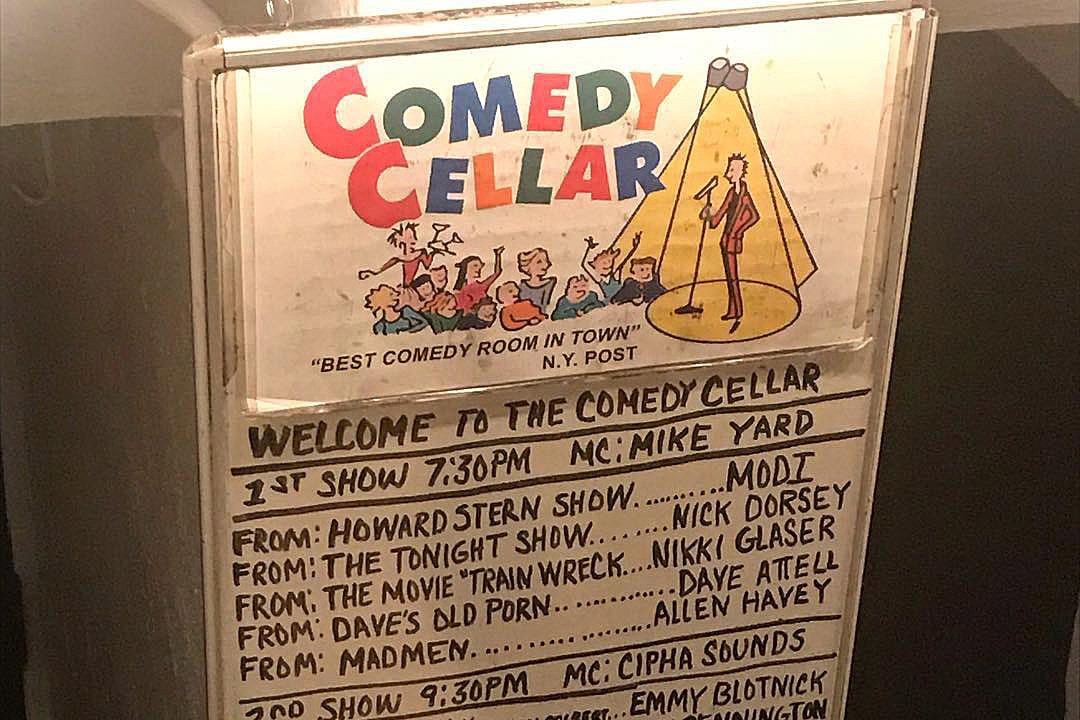 COMEDY
CELLAR
"BEST COMEDY ROOM IN TOWN"
N.Y. POST
WELCOME TO THE COMEDY CELLAR
1ST SHOW 7:30PM MC: MIKE YARD
FROM: HOWARD STERN SHOW..........MODI
FROM: THE TONIGHT SHOW.......NICK DORSEY
FROM: THE MOVIE "TRAIN WRECK....NIKKI GLASER
FROM: DAVE'S OLD PORN.............DAVE ATTELL
FROM: MADMEN....................ALLEN HAVEY
2ND SHOW 9:30PM MC: CIPHA SOUNDS
...EMMY BLOTNICK